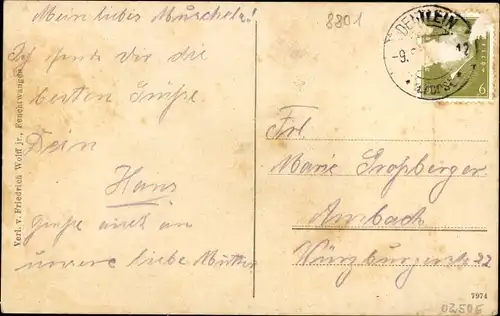 Mein liebes Muschele!
Ich sende dir die
besten Grüße.
Dein
Hans
Grüße auch an
unsere liebe Mutter
Verl. v. Friedrich Wolff jr., Feuchtwangen.
8801
DENTLEIN
-9. 12
a. Forst
6
Frl.
Marie Großberger
Ansbach
Würzburgerstr. 22
7974
02505